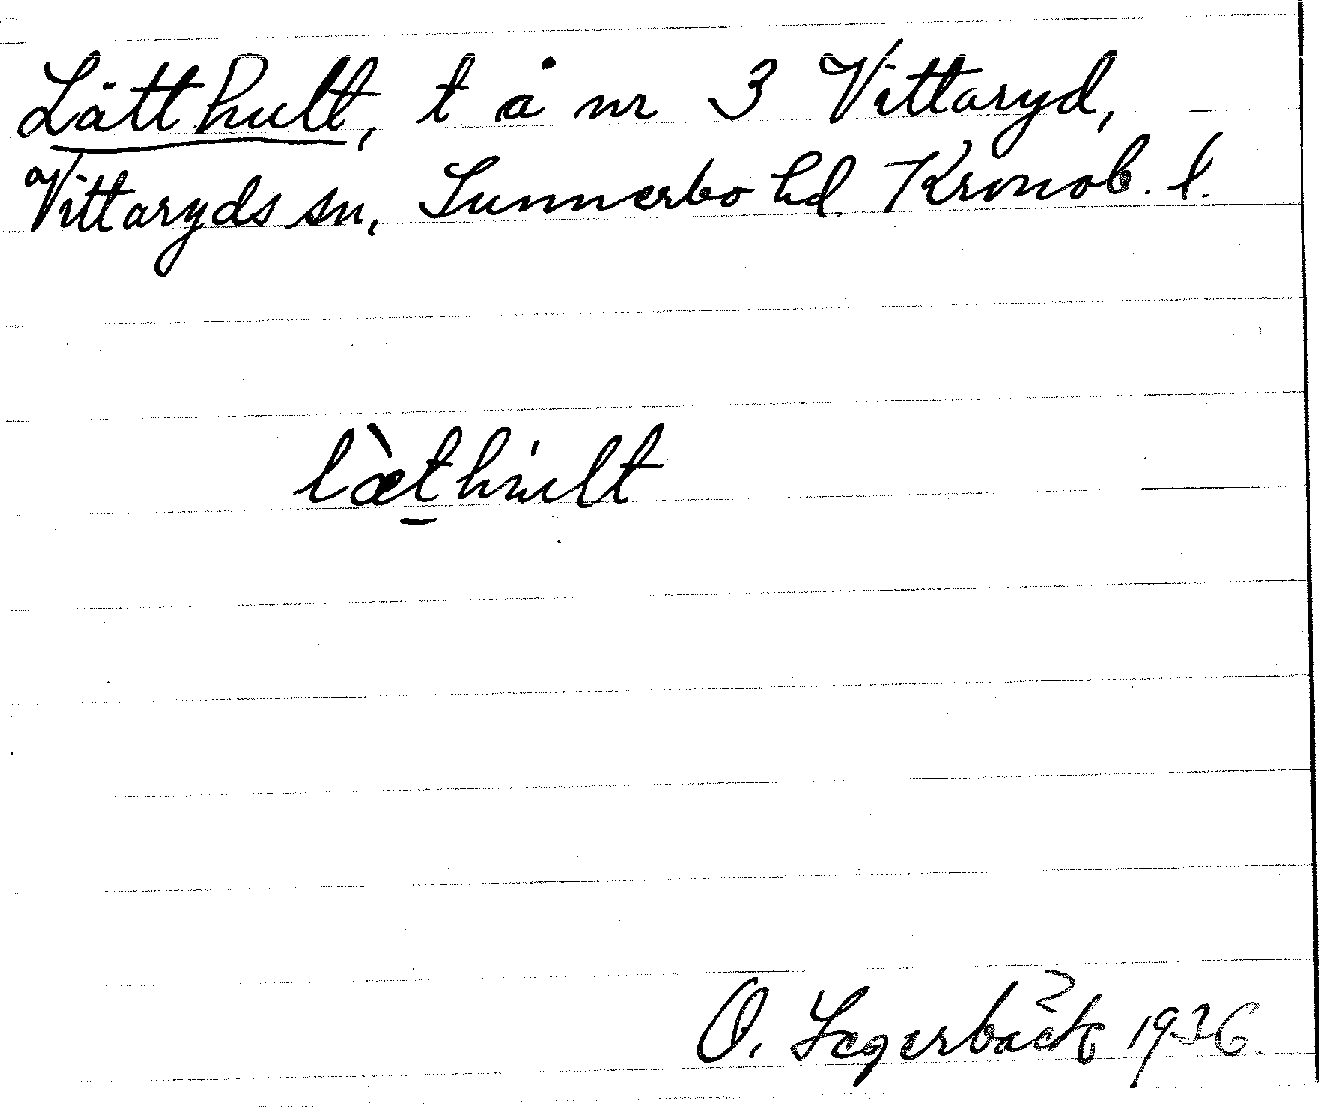 Lätthult, t å nr 3 Vittaryd,
Vittaryds sn, Sunnerbo hd. Kronob. l.
læ̀thúlt
O. Segerbäck 1936.